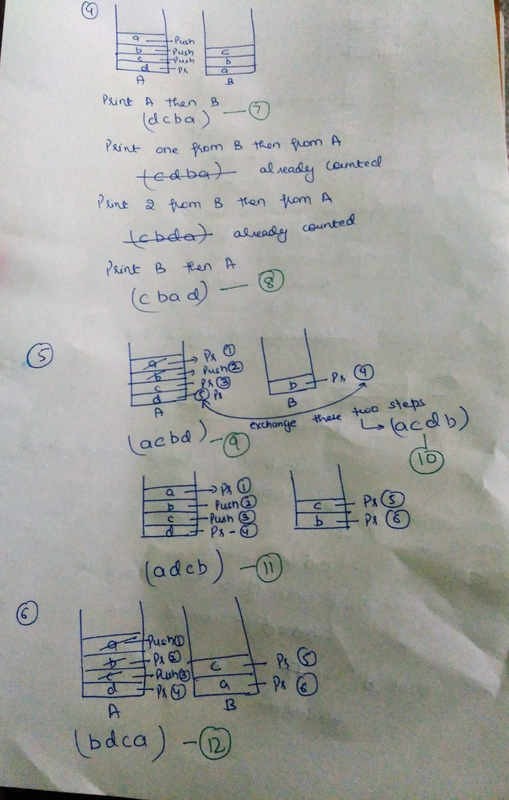 ④
a Push
b Push
c Push
d Pr
A
c
b
a
B
Print A then B
(dcba) — ⑦
Print one from B then from A
(cdba) already counted
Print 2 from B then from A
(cbda) already counted
Print B then A
(cbad) — ⑧
⑤
a Pr ①
b Push ②
c Pr ③
d ⑤ Pr
A
b Pr ④
B
exchange these two steps
(acbd) — ⑨
(acdb)
⑩
a Pr ①
b Push ②
c Push ③
d Pr - ④
c Pr ⑤
b Pr ⑥
(adcb) — ⑪
⑥
a Push ①
b Pr ②
c Push ③
d Pr ④
A
c Pr ⑤
a Pr ⑥
B
(bdca) — ⑫